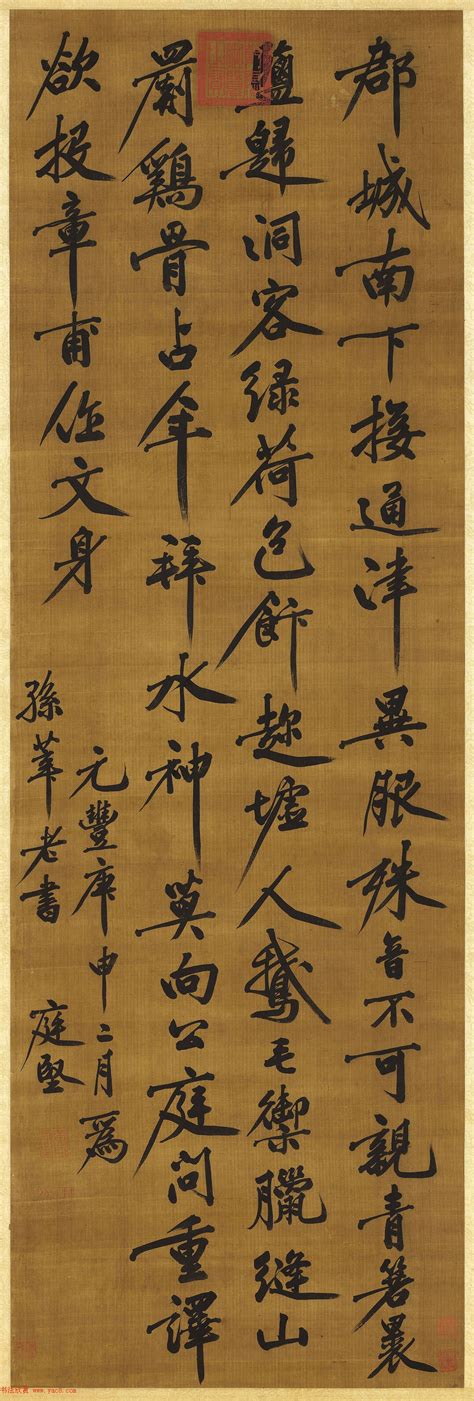 郡城南下接通津異服殊音不可親青箬裹
鹽歸洞客緑荷包飯趂墟人鵞毛禦臘縫山
罽鷄骨占年拜水神莫向公庭問重譯
欲投章甫作文身
元豐庚申二月爲
孫莘老書 庭堅
书法欣赏 www.yac8.com